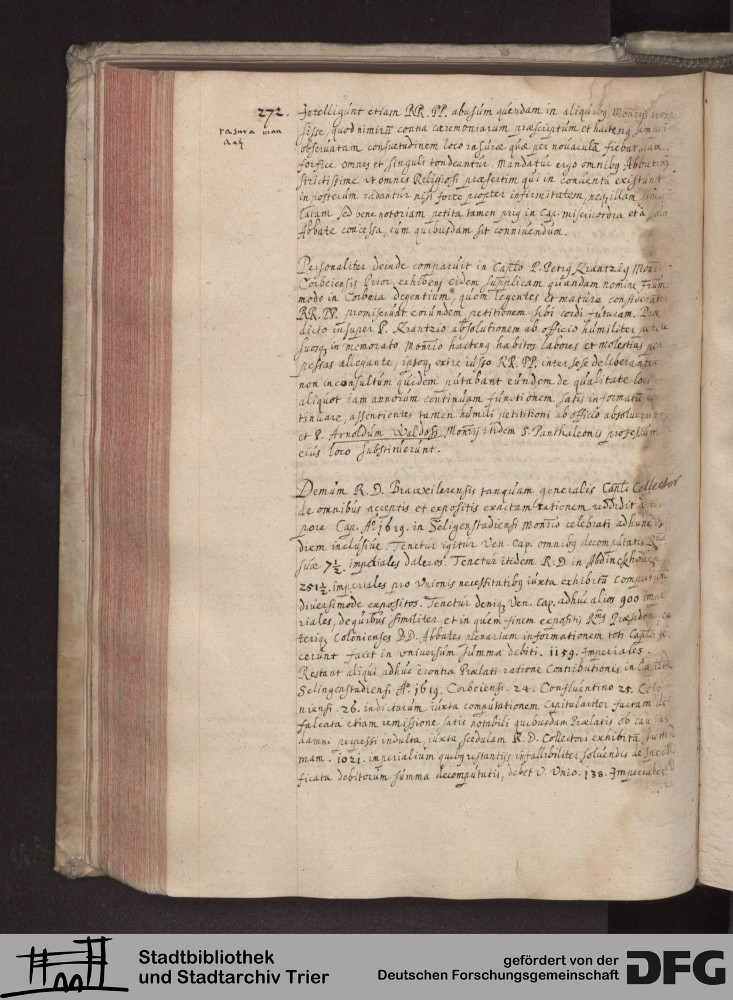 272. Intelligunt etiam RR. PP. abusum quendam in aliquibq Monrijs
rasura man
datq
sisse, quod nimirũ contra cæremoniarum præscriptum et hactenq
observatam consuetudinem loco rasuræ quæ per novaculã fiebat
forfice omnes et singuli tondeantur. Mandatur ergo omnibq Abbatibq
strictissime vt omnes Religiosi præsertim qui in conventu existunt
inposterum radantur nisi forte propter infirmitatem, neq, illam
sed bene notoriam petita tamen priq in Cap. misericordia et a solo
Abbate concessa, cum quibusdam sit connivendum.
Personaliter deinde comparuit in Caplo P. Petrq Krantziq Monrij
Corbeiensis Prior, exhibens eidem supplicam quandam nomine Frum
modo in Corbeia degentium, quem legentes et mature considerantes
RR. PP. promiserunt eorundem petitionem sibi cordi futuram. Præ
dicto insuper P. Krantzio absolutionem ab officio humiliter
suosq, in memorato Monrio hactenq habitos labores et molestias per
pessas allegante, ipsoq, exire iusso RR. PP. inter sese deliberantes
non inconsultum quidem putabant eundem de qualitate loci
aliquot iam annorum continuam functionem satis informatũ
tinuare, assentientes tamen humili petititioni ab officio absolverunt
et P. Arnoldum Waldoss Monrij itidem S. Panthaleonis professum
eius loco substituerunt.
Demum R. D. Brawilerensis tanquam generalis Capli Collector
de omnibus acceptis et expositis exactam rationem reddidit a
pore Cap. Ao. 1619. in Seligenstadiensi Monrio celebrati adhunc
diem inclusiue. Tenetur igitur Ven. Cap. omnibq decomputatis Rdæ
suæ 7½. imperiales daleros. Tenetur itidem R. D. in Abdinckhoven
251½. imperiales pro Vnionis necessitatibq iuxta exhibitũ computum
diversimode expositos. Tenetur deniq, Ven. Cap. adhuc alios 900
riales, de quibus similiter et in quem finem expositi Rmq Præsidens
teriq, Colonienses DD. Abbates plenariam informationem toti Caplo
cerunt facit in vniversum summa debiti. 1159. Imperiales.
Restant aliqui adhuc è contra Prælati ratione Contributionis, in Caplo
Selingenstadiensi Ao. 1619. Corbeiensi. 24. Confluentino 25. Colo
niensi. 26. indictarum iuxta computationem Capitulariter factam de
falcata etiam remissione satis notabili quibusdam Prælatis ob causas
damni perpessi indulta, iuxta scedulam R. D. Collectoris exhibitã, sum
mam. 1021. imperialium quibq restantijs infallibiliter soluendis
ficata debitorum summa decomputatis, debet V. Vnio. 138. Imperiales
Stadtbibliothek
und Stadtarchiv Trier
gefördert von der
Deutschen Forschungsgemeinschaft
DFG